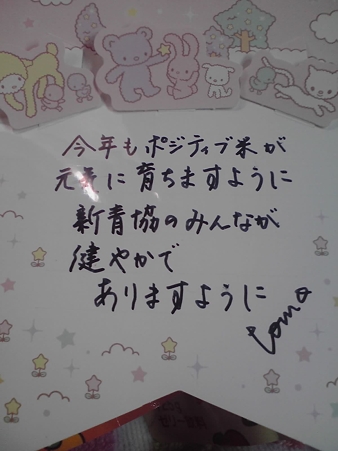 今年もポジティブ米が
元気に育ちますように
新青協のみんなが
健やかで
ありますように